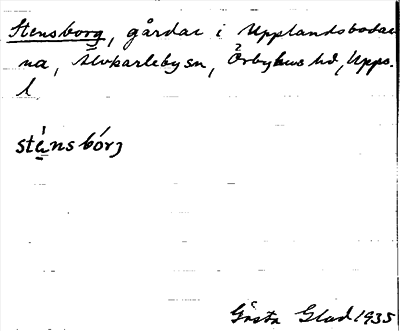 Stensborg, gårdar i Upplandsbodar
na, Älvkarleby sn, Örbyhus hd, Upps.
l.
sténsbórj
Gösta Glad 1935